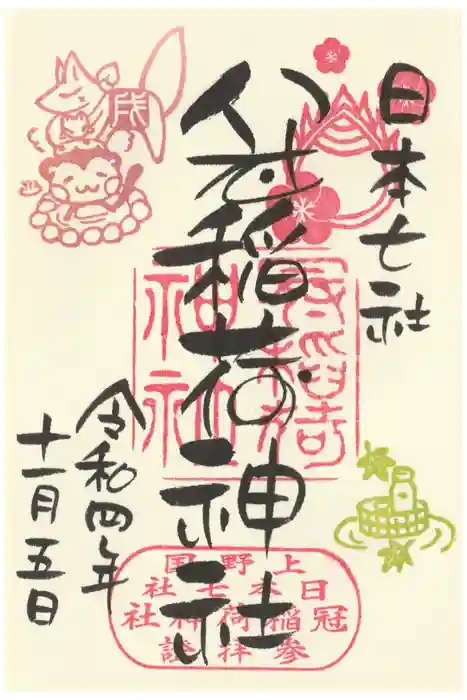 日本七社
冠稲荷神社
令和四年
十一月五日
冠稲荷
神社
上野国
日本七社
冠稲荷神社
參拝證